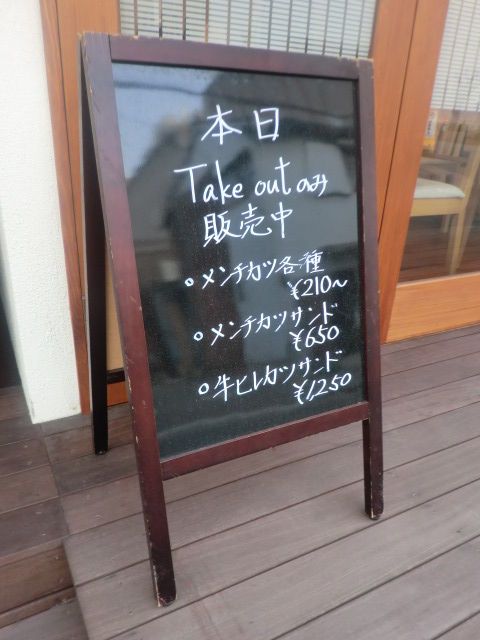 本日
Take outのみ
販売中
○メンチカツ各種
¥210～
○メンチカツサンド
¥650
○牛ヒレカツサンド
¥1,250